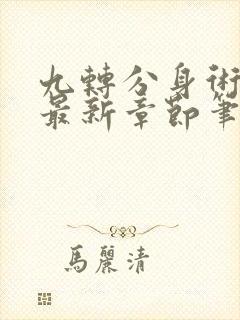 九轉分身術
最新章節筆
馬麗清